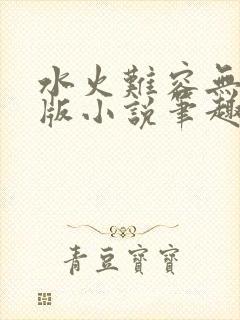 水火難容無
版小說筆趣
青豆寶寶